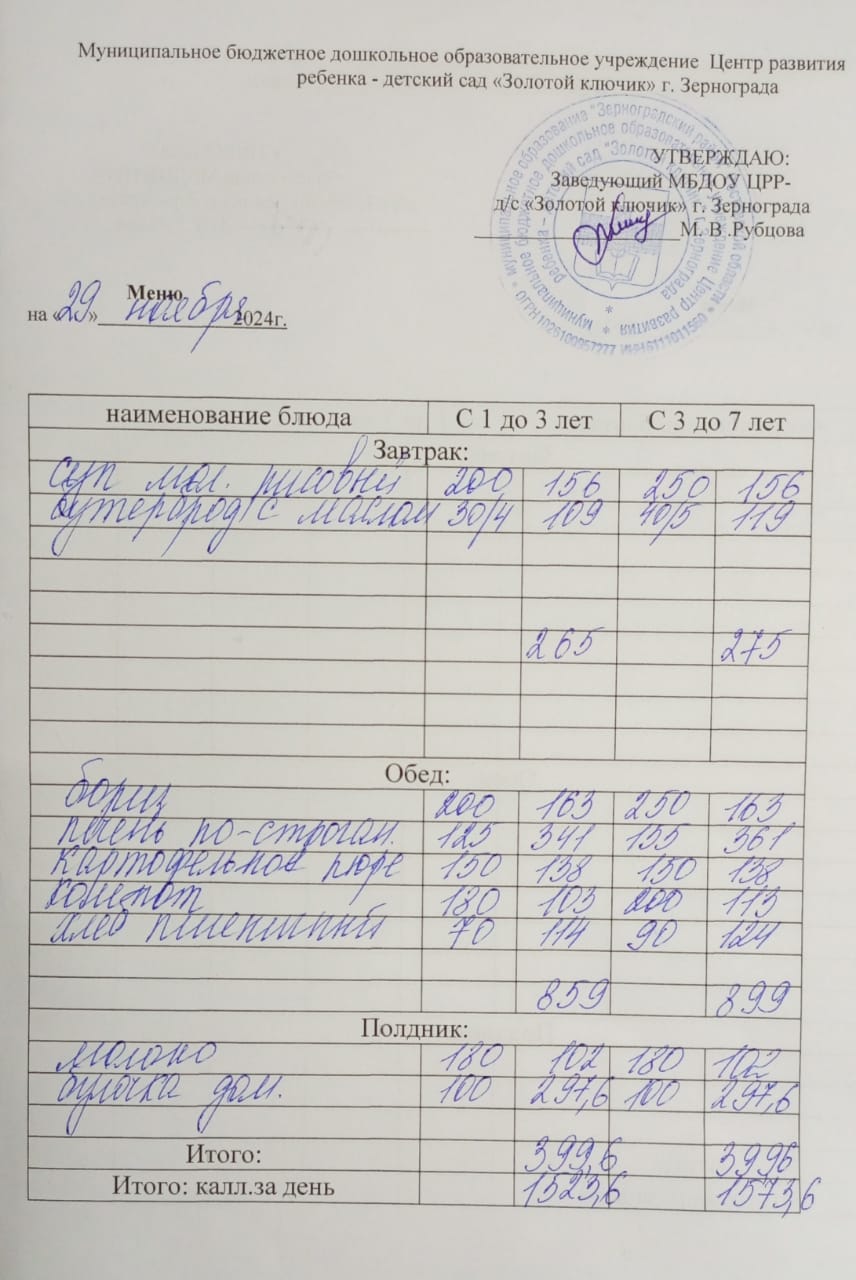 Муниципальное бюджетное дошкольное образовательное учреждение Центр развития
ребенка - детский сад «Золотой ключик» г. Зернограда
УТВЕРЖДАЮ:
Заведующий МБДОУ ЦРР-
д/с «Золотой ключик» г. Зернограда
М. В .Рубцова
Меню
на «29» ноября 2024г.
наименование блюда С 1 до 3 лет С 3 до 7 лет
Завтрак:
суп мол. рисовый 200 156 250 156
бутерброд с маслом 30/4 109 40/5 119
265 275
Обед:
борщ 200 163 250 163
печень по-строган. 125 341 155 361
картофельное пюре 150 138 150 138
компот 180 103 200 113
хлеб пшеничный 70 114 90 124
859 899
Полдник:
молоко 180 102 180 102
булочка дом. 100 297,6 100 297,6
Итого: 399,6 3996
Итого: калл.за день 1523,6 1573,6